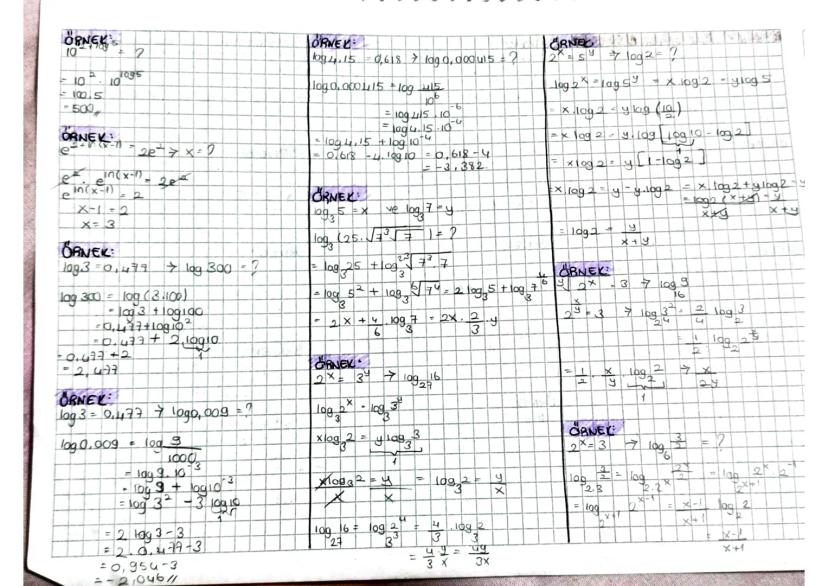 ÖRNEK:
10^(2+log5) = ?
= 10^2 . 10^log5
= 100.5
= 500 //
ÖRNEK:
e^(2+ln(x-1)) = 2e^2 → x = ?
e^2 . e^ln(x-1) = 2e^2
e^ln(x-1) = 2
x-1 = 2
x = 3
ÖRNEK:
log3 = 0,477 → log 300 = ?
log 300 = log(3.100)
= log3 + log100
= 0,477 + log10^2
= 0,477 + 2.log10
1
= 0,477 + 2
= 2,477
ÖRNEK:
log3 = 0,477 → log0,009 = ?
log0,009 = log 9/1000
= log 9.10^-3
= log 9 + log10^-3
= log 3^2 - 3 log10
1
= 2 log3 - 3
= 2. 0,477 - 3
= 0,954 - 3
= -2,046 //
ÖRNEK:
log4,15 = 0,618 → log0,000415 = ?
log0,000415 = log 415/10^6
= log415.10^-6
= log4.15.10^-4
= log4,15 + log10^-4
= 0,618 - 4.log10 = 0,618 - 4
= -3,382
ÖRNEK:
log_3 5 = x ve log_3 7 = y
log_3 (25.√7^3√7) = ?
= log_3 25 + log_3 √7^3.7
= log_3 5^2 + log_3 ^6√7^4 = 2 log_3 5 + log_3 7^(4/6)
= 2x + 4/6 . log_3 7 = 2x . 2/3 . y
ÖRNEK:
2^x = 3^y → log_27 16
log_3 2^x = log_3 3^y
x log_3 2 = y log_3 3
1
x log_3 2 / x = y / x = log_3 2 = y/x
log_27 16 = log_3^3 2^4 = 4/3 . log_3 2
= 4/3 . y/x = 4y/3x
ÖRNEK
2^x = 5^y → log2 = ?
log2^x = log5^y = x.log2 = ylog5
= x.log2 = ylog(10/2)
= x log2 = y.log [log10 - log2]
1
= xlog2 = y[1 - log2]
= x.log2 = y - y.log2 = x.log2 + ylog2 = y
= log2(x+y) / x+y = y / x+y
= log2 = y/x+y
ÖRNEK:
^y√2^x = 3 → log_16 9
2^(x/y) = 3 → log_2^4 3^2 = 2/4 log_2 3
= 1/2 log_2 2^(x/y)
= 1/2 . x/y . log_2 2 → x/2y
1
ÖRNEK:
2^x = 3 → log_6 3/2 = ?
log_2.3 3/2 = log_2.2^x 2^x/2 = log_2^(x+1) 2^x.2^-1
= log_2^(x+1) 2^(x-1) = x-1/x+1 log_2 2
= x-1/x+1